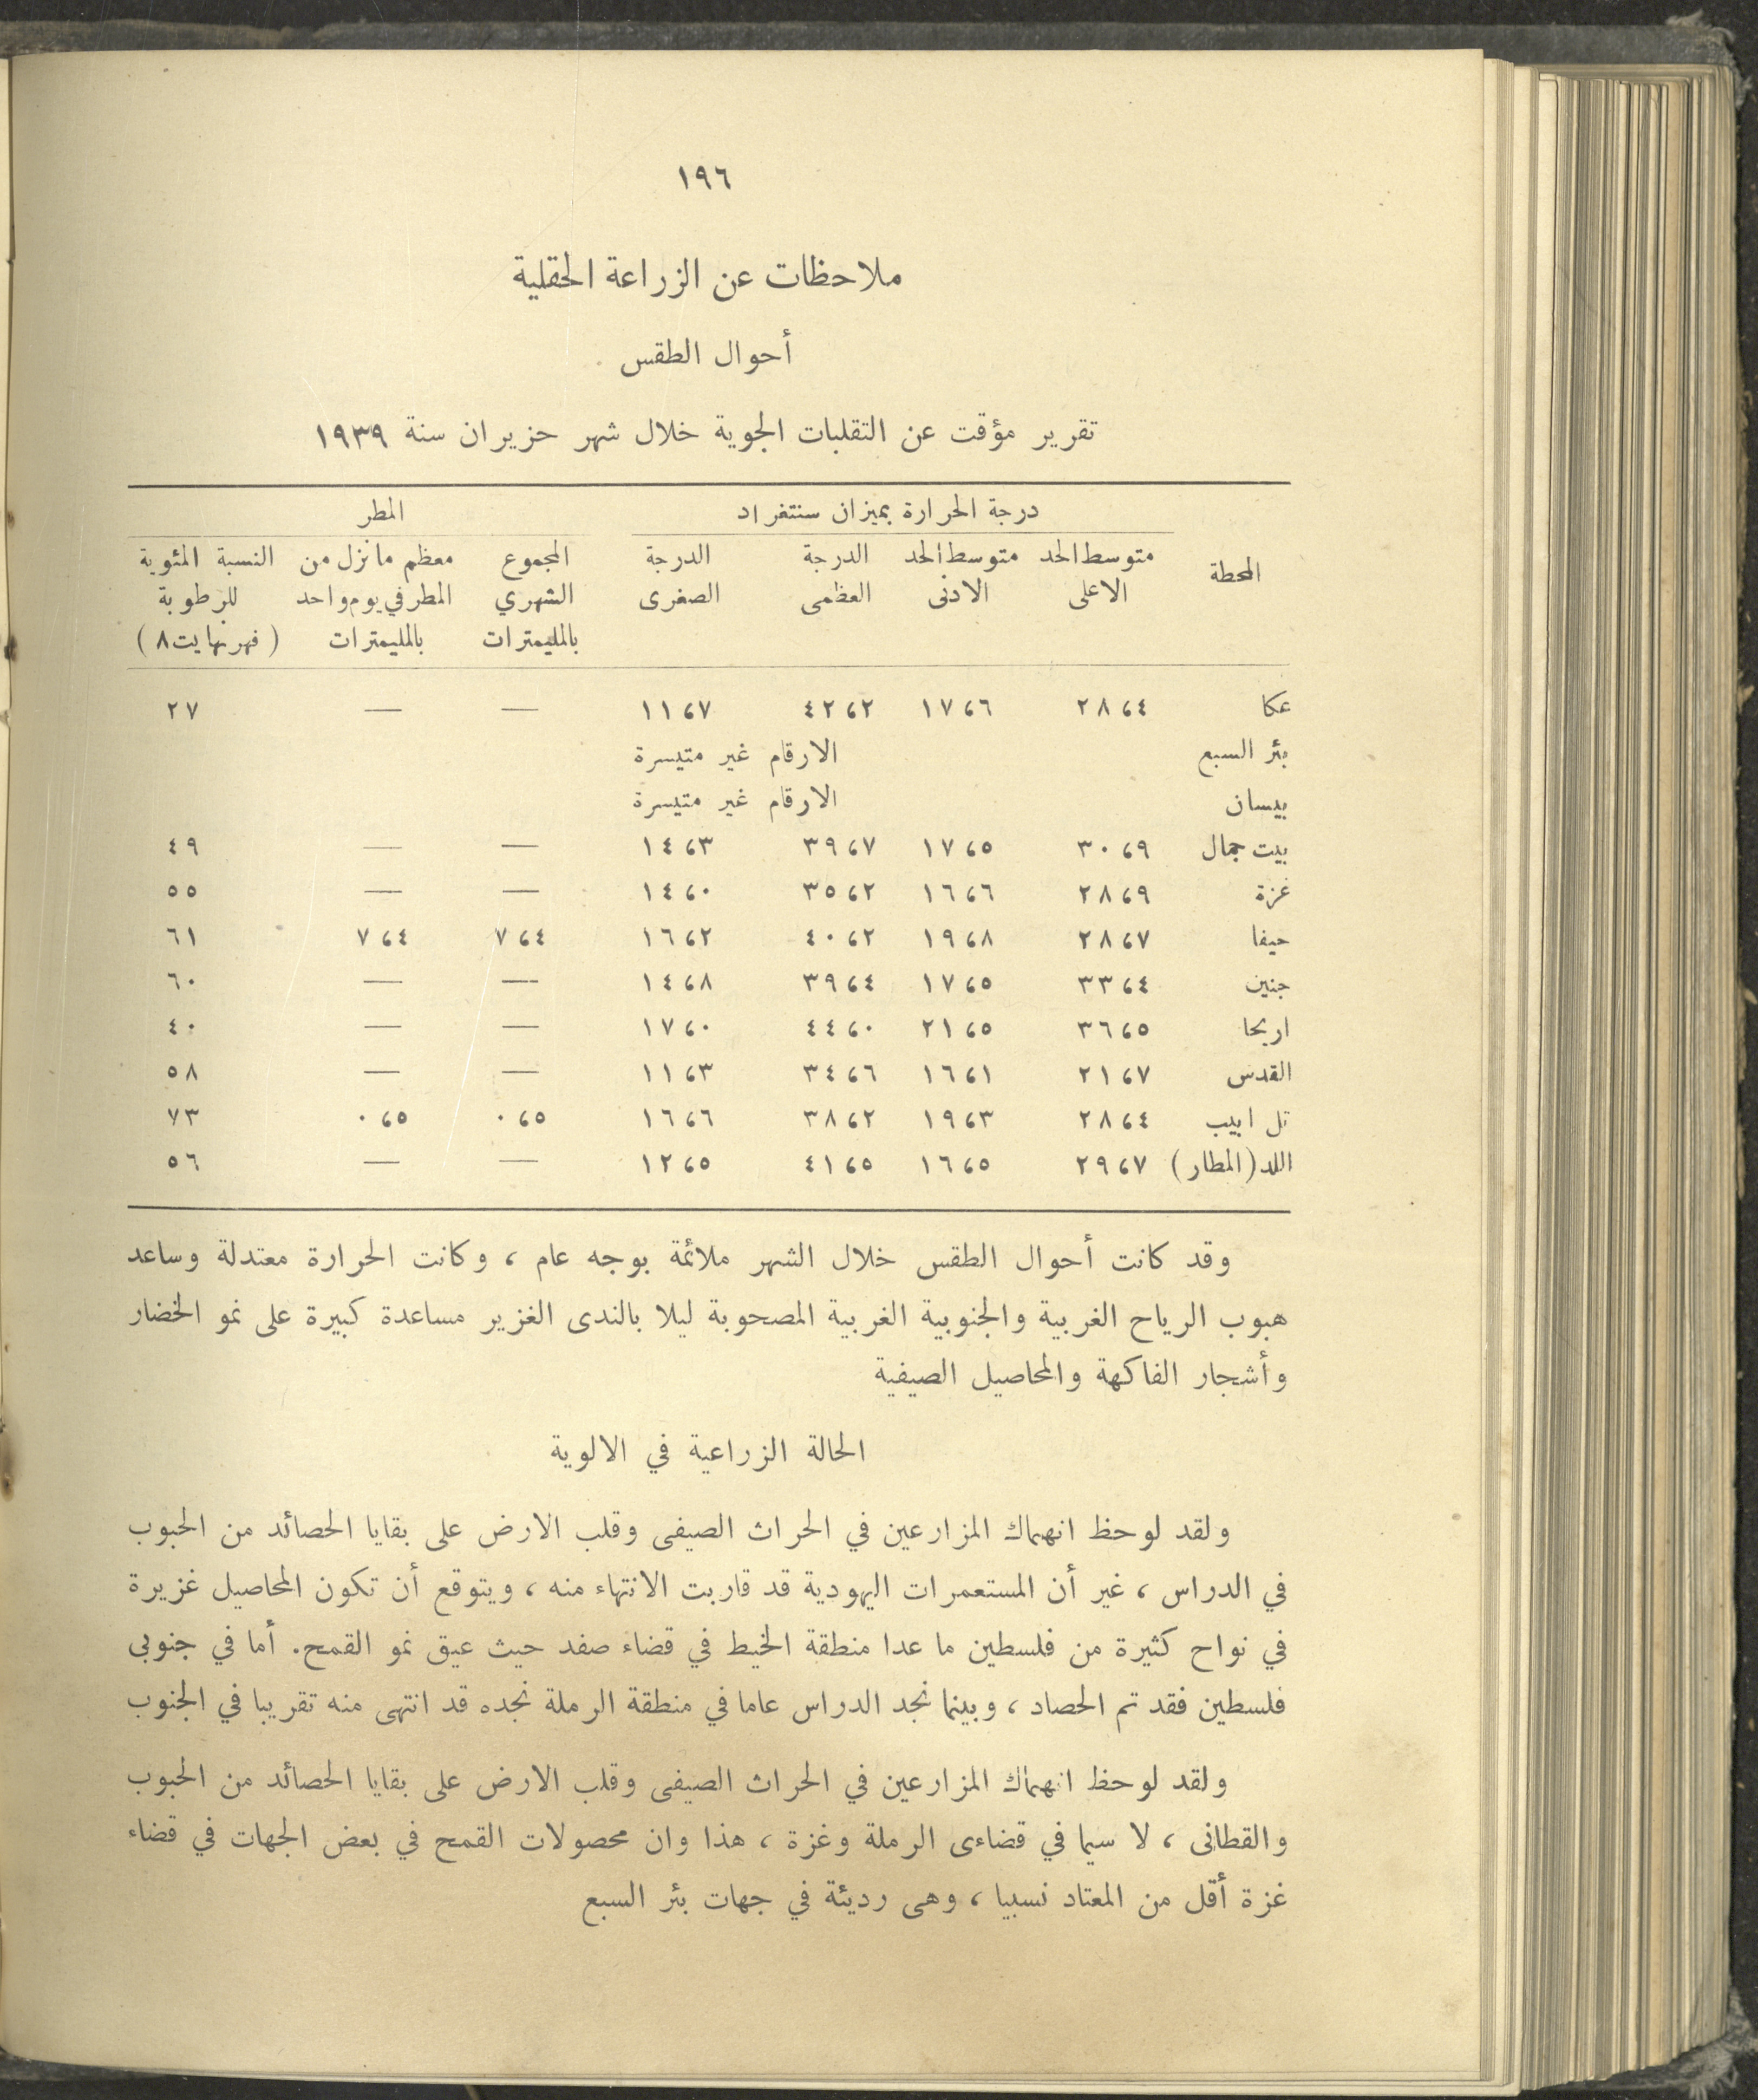 ١٩٦
ملاحظات عن الزراعة الحقلية
أحوال الطقس
تقرير مؤقت عن التقلبات الجوية خلال شهر حزيران سنة ١٩٣٩
درجة الحرارة بميزان سنتغراد المطر
المحطة متوسط الحد الدرجة متوسط الحد الدرجة المجموع معظم ما نزل من النسبة المئوية
الاعلى الادنى العظمى الصغرى الشهري المطر في يوم واحد للرطوبة
بالمليمترات بالمليمترات (فهرنهايت ٨)
عكا ٢٨،٤ ١٧،٦ ٤٢،٢ ١١،٧ — — ٢٧
بئر السبع الارقام غير متيسرة
بيسان الارقام غير متيسرة
بيت جمال ٣٠،٩ ١٧،٥ ٣٩،٧ ١٤،٣ — — ٤٩
غزة ٢٨،٩ ١٦،٦ ٣٥،٢ ١٤،٠ — — ٥٥
حيفا ٢٨،٧ ١٩،٨ ٤٠،٢ ١٦،٢ ٧،٤ ٧،٤ ٦١
جنين ٣٣،٤ ١٧،٥ ٣٩،٤ ١٤،٨ — — ٦٠
اريحا ٣٦،٥ ٢١،٥ ٤٤،٠ ١٧،٠ — — ٤٠
القدس ٢١،٧ ١٦،١ ٣٤،٦ ١١،٣ — — ٥٨
تل ابيب ٢٨،٤ ١٩،٣ ٣٨،٢ ١٦،٦ ٠،٥ ٠،٥ ٧٣
اللد (المطار) ٢٩،٧ ١٦،٥ ٤١،٥ ١٢،٥ — — ٥٦
وقد كانت أحوال الطقس خلال الشهر ملائمة بوجه عام ، وكانت الحرارة معتدلة وساعد
هبوب الرياح الغربية والجنوبية الغربية المصحوبة ليلا بالندى الغزير مساعدة كبيرة على نمو الخضار
وأشجار الفاكهة والمحاصيل الصيفية
الحالة الزراعية في الالوية
ولقد لوحظ انهماك المزارعين في الحراث الصيفى وقلب الارض على بقايا الحصائد من الحبوب
في الدراس ، غير أن المستعمرات اليهودية قد قاربت الانتهاء منه ، ويتوقع أن تكون المحاصيل غزيرة
في نواح كثيرة من فلسطين ما عدا منطقة الخيط في قضاء صفد حيث عيق نمو القمح. أما في جنوبى
فلسطين فقد تم الحصاد ، وبينما نجد الدراس عاما في منطقة الرملة نجده قد انتهى منه تقريبا في الجنوب
ولقد لوحظ انهماك المزارعين في الحراث الصيفى وقلب الارض على بقايا الحصائد من الحبوب
والقطانى ، لا سيما في قضاءى الرملة وغزة ، هذا وان محصولات القمح في بعض الجهات في قضاء
غزة أقل من المعتاد نسبيا ، وهى رديئة في جهات بئر السبع